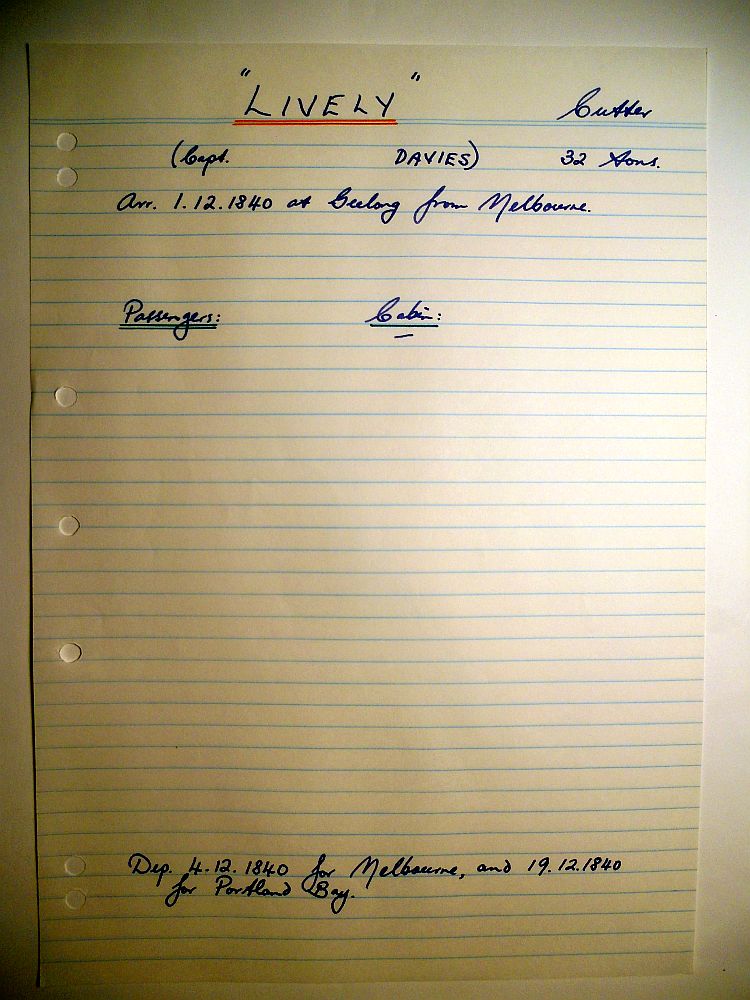 "LIVELY" Cutter
(Capt. DAVIES) 32 tons.
Arr. 1.12.1840 at Geelong from Melbourne.
Passengers: Cabin:
—
Dep. 4.12.1840 for Melbourne, and 19.12.1840
for Portland Bay.